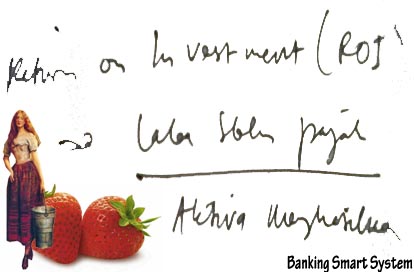 Return on Investment (ROI)
Laba Sblm pajak
Aktiva
Banking Smart System